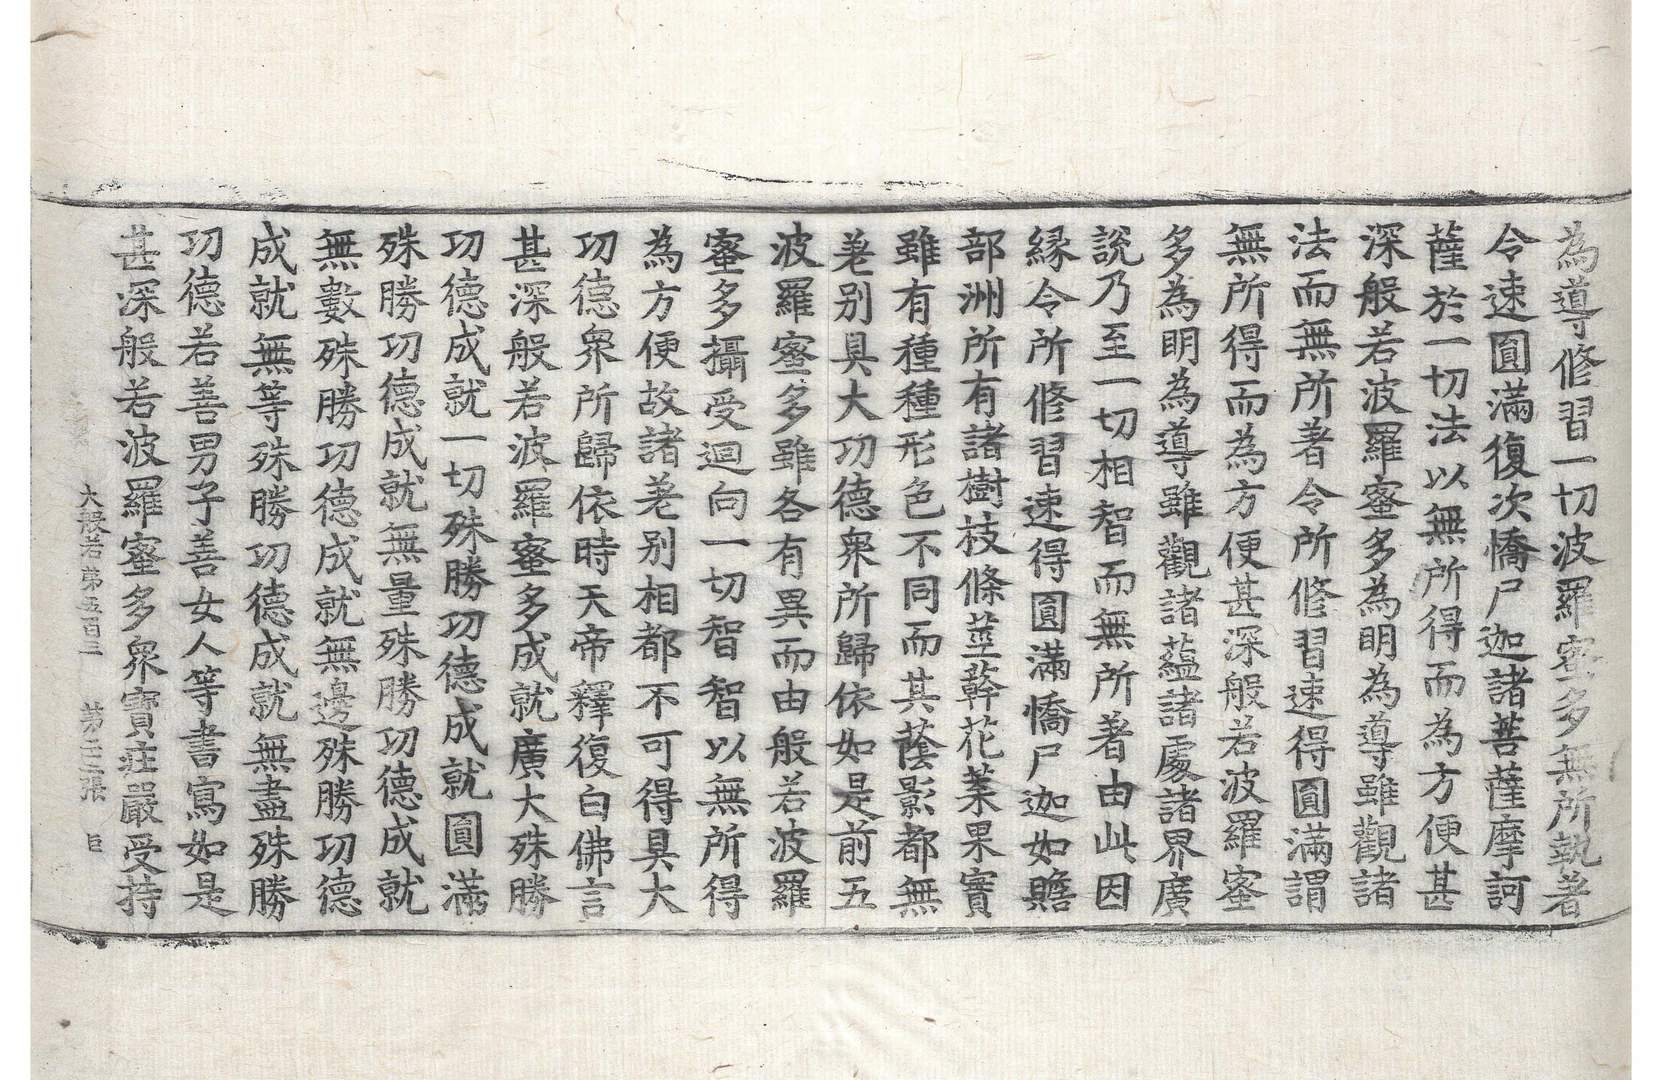 為導修習一切波羅蜜多無所執著
令速圓滿復次憍尸迦諸菩薩摩訶
薩於一切法以無所得而為方便甚
深般若波羅蜜多為明為導雖觀諸
法而無所著令所修習速得圓滿謂
無所得而為方便甚深般若波羅蜜
多為明為導雖觀諸蘊諸處諸界廣
說乃至一切相智而無所著由此因
緣令所修習速得圓滿憍尸迦如贍
部洲所有諸樹枝條莖幹花菓果實
雖有種種形色不同而其蔭影都無
差別具大功德衆所歸依如是前五
波羅蜜多雖各有異而由般若波羅
蜜多攝受迴向一切智智以無所得
為方便故諸差別相都不可得具大
功德衆所歸依時天帝釋復白佛言
甚深般若波羅蜜多成就廣大殊勝
功德成就一切殊勝功德成就圓滿
殊勝功德成就無量殊勝功德成就
無數殊勝功德成就無邊殊勝功德
成就無等殊勝功德成就無盡殊勝
功德若善男子善女人等書寫如是
甚深般若波羅蜜多衆寶莊嚴受持
大般若第五百三 第三張